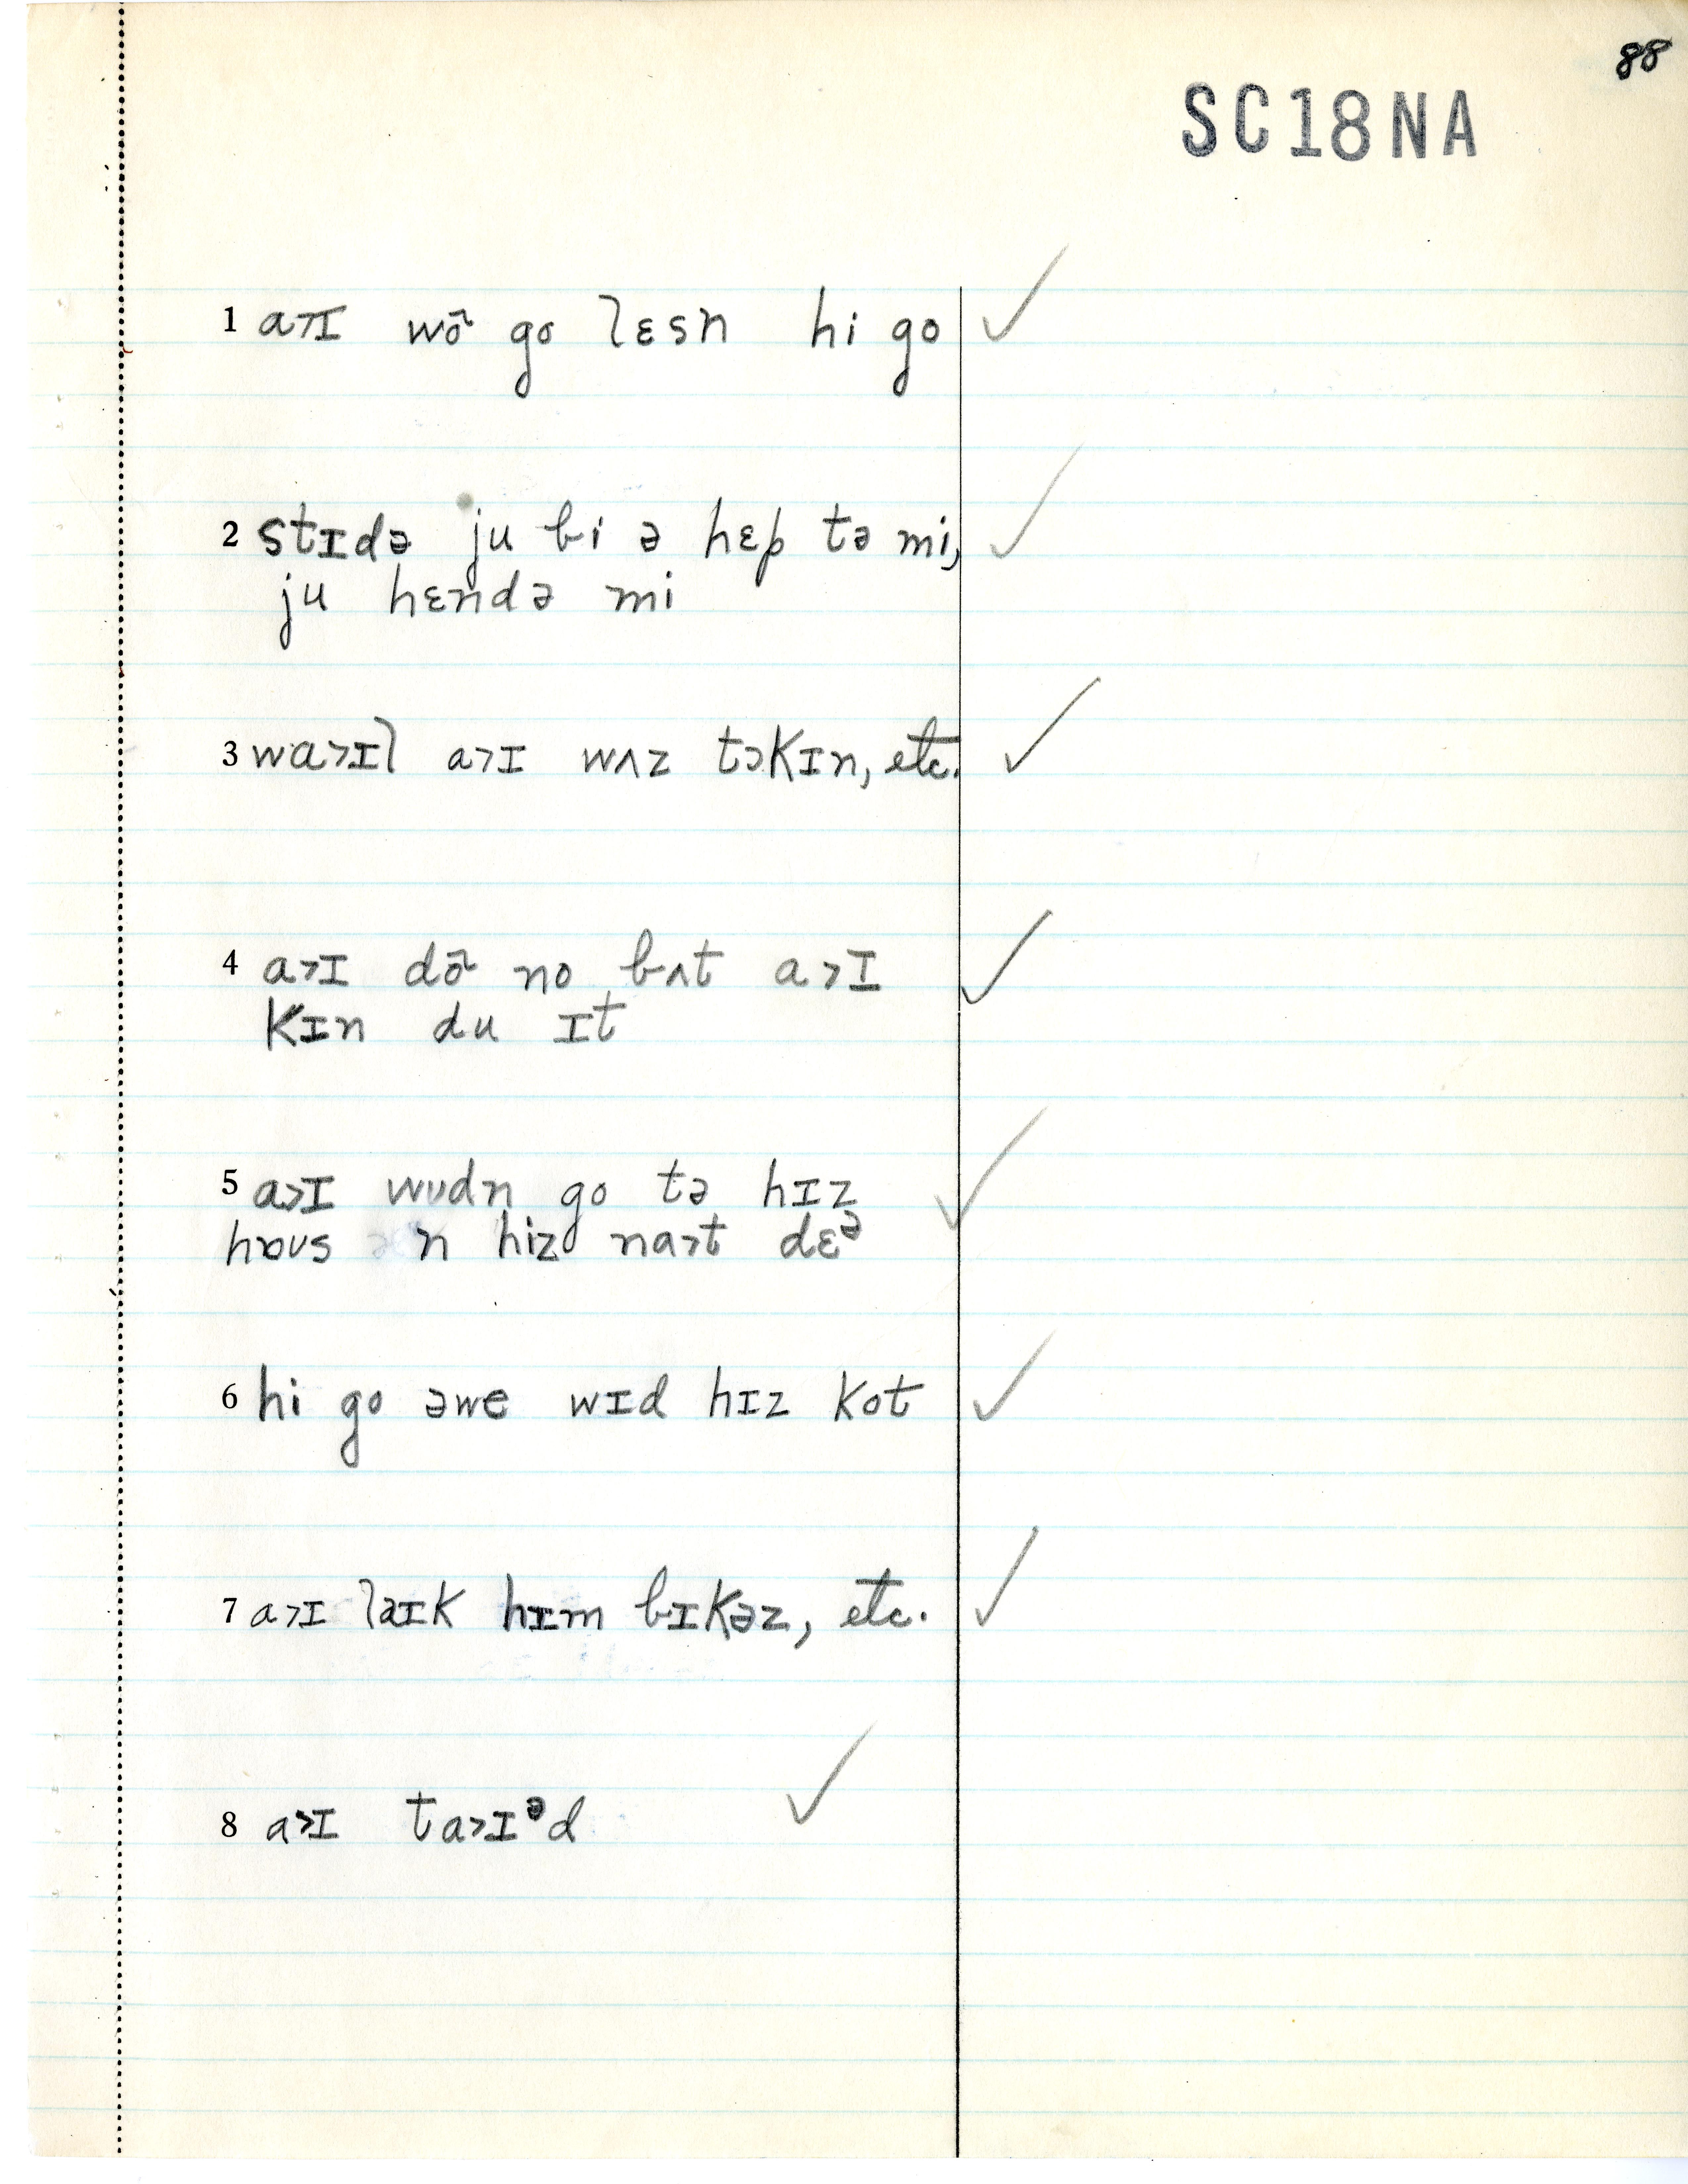 88
SC18NA
1 a˃ɪ wõ go lɛsn hi go ✓
2 stɪdə ju bi ə hɛp tə mi, ✓
ju hɛndə mi
3 wa˃ɪl a˃ɪ wʌz tɔkɪn, etc. ✓
4 a˃ɪ dõ no bʌt a˃ɪ ✓
kɪn du ɪt
5 a˃ɪ wʊdn go tə hɪz ✓
hɒʊs n hiz na˃t dɛᵊ
6 hi go əwe wɪd hɪz kot ✓
7 a˃ɪ laɪk hɪm bɪkəz, etc. ✓
8 a˃ɪ ta˃ɪᵊd ✓